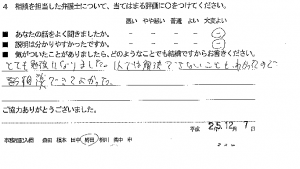 4 相談を担当した弁護士について、当てはまる評価に○をつけてください。
悪い やや悪い 普通 よい 大変よい
■ あなたの話をよく聞きましたか。
■ 説明は分かりやすかったですか。
■ 気がついたことがありましたら、どのようなことでも結構ですからお書きください。
とても勉強になりました。1人では解決できないこともあるので
勉強できてよかった。
ご協力ありがとうございました。
平成 25 12月 7日